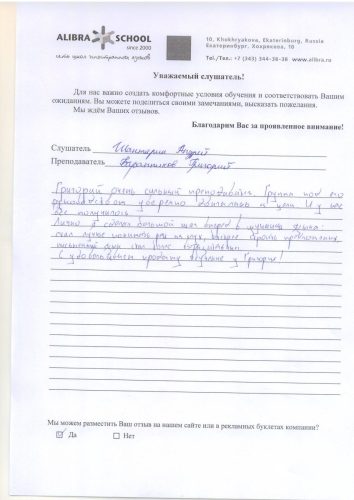 ALIBRA SCHOOL
since 2000
сеть школ иностранных языков
10, Khokhryakova, Ekaterinburg, Russia
Екатеринбург, Хохрякова, 10
Tel./Тел.: +7 (343) 344-38-38 www.alibra.ru
Уважаемый слушатель!
Для нас важно создать комфортные условия обучения и соответствовать Вашим
ожиданиям. Вы можете поделиться своими замечаниями, высказать пожелания.
Мы ждём Ваших отзывов.
Благодарим Вас за проявленное внимание!
Слушатель Андрей
Преподаватель Григорий
Григорий очень сильный преподаватель. Группа под его
руководством уверенно двигалась к цели. И у нас
все получилось!
Лично я сделал большой шаг вперед в изучении языка:
стал лучше понимать речь на слух, быстрее строить предложения,
С удовольствием продолжу обучение у Григория!
Мы можем разместить Ваш отзыв на нашем сайте или в рекламных буклетах компании?
Да Нет